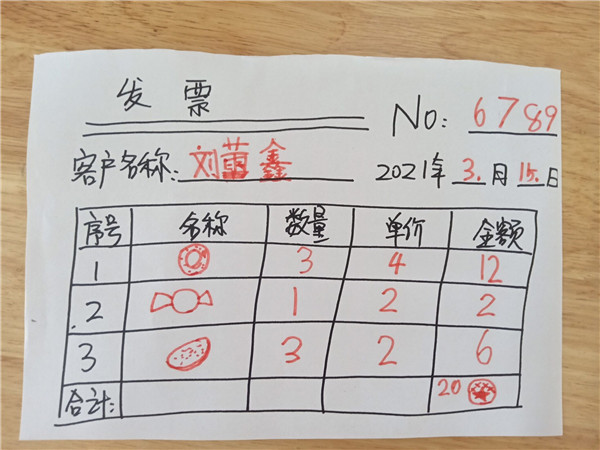 发票
No: 6789
客户名称: 刘蕾鑫
2021年 3.月 15.日
序号 名称 数量 单价 金额
1 3 4 12
2 1 2 2
3 3 2 6
合计: 20